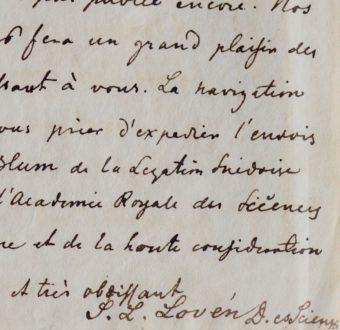 plus publié encore. Nos
fera un grand plaisir des
à vous. La navigation
vous prier d'expedier l'envois
Blum de la Legation Suédoise
l'Academie Royale des Sciences
et de la haute consideration
et très obéissant
S. L. Lovén D. es Sciences